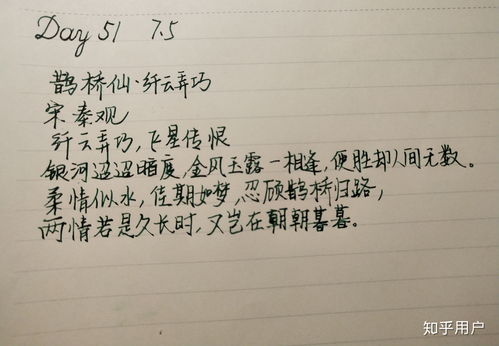 Day 51 7.5
鹊桥仙·纤云弄巧
宋 秦观
纤云弄巧,飞星传恨
银河迢迢暗度,金风玉露一相逢,便胜却人间无数。
柔情似水,佳期如梦,忍顾鹊桥归路,
两情若是久长时,又岂在朝朝暮暮。
知乎用户